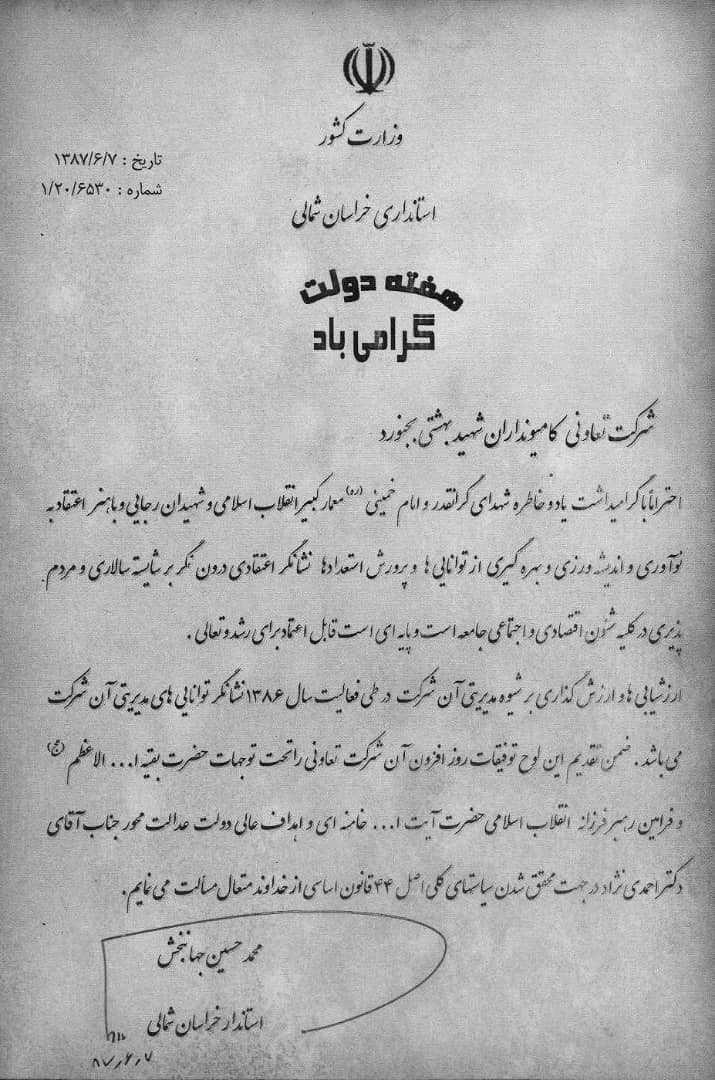 وزارت کشور
تاریخ : ۱۳۸۷/۶/۷
شماره : ۱/۲۰/۶۵۳۰
استانداری خراسان شمالی
هفته دولت
گرامی باد
شرکت تعاونی کامیونداران شهید بهشتی بجنورد
احتراماً با گرامیداشت یاد و خاطره شهدای گرانقدر و امام خمینی (ره) معمار کبیر انقلاب اسلامی و شهیدان رجایی و باهنر اعتقاد به
نوآوری و اندیشه ورزی و بهره گیری از توانایی ها و پرورش استعدادها نشانگر اعتقادی درون نگر بر شایسته سالاری و مردم
پذیری در کلیه شئون اقتصادی و اجتماعی جامعه است و پایه ای است قابل اعتماد برای رشد و تعالی .
ارزشیابی ها و ارزش گذاری بر شیوه مدیریتی آن شرکت در طی فعالیت سال ۱۳۸۶ نشانگر توانایی های مدیریتی آن شرکت
می باشد . ضمن تقدیم این لوح توفیقات روز افزون آن شرکت تعاونی را تحت توجهات حضرت بقیه ا... الاعظم (عج)
و فرامین رهبر فرزانه انقلاب اسلامی حضرت آیت ا... خامنه ای و اهداف عالی دولت عدالت محور جناب آقای
دکتر احمدی نژاد در جهت محقق شدن سیاستهای کلی اصل ۴۴ قانون اساسی از خداوند متعال مسألت می نمایم.
محمد حسین جهانبخش
استاندار خراسان شمالی
۸۷٫۶٫۷